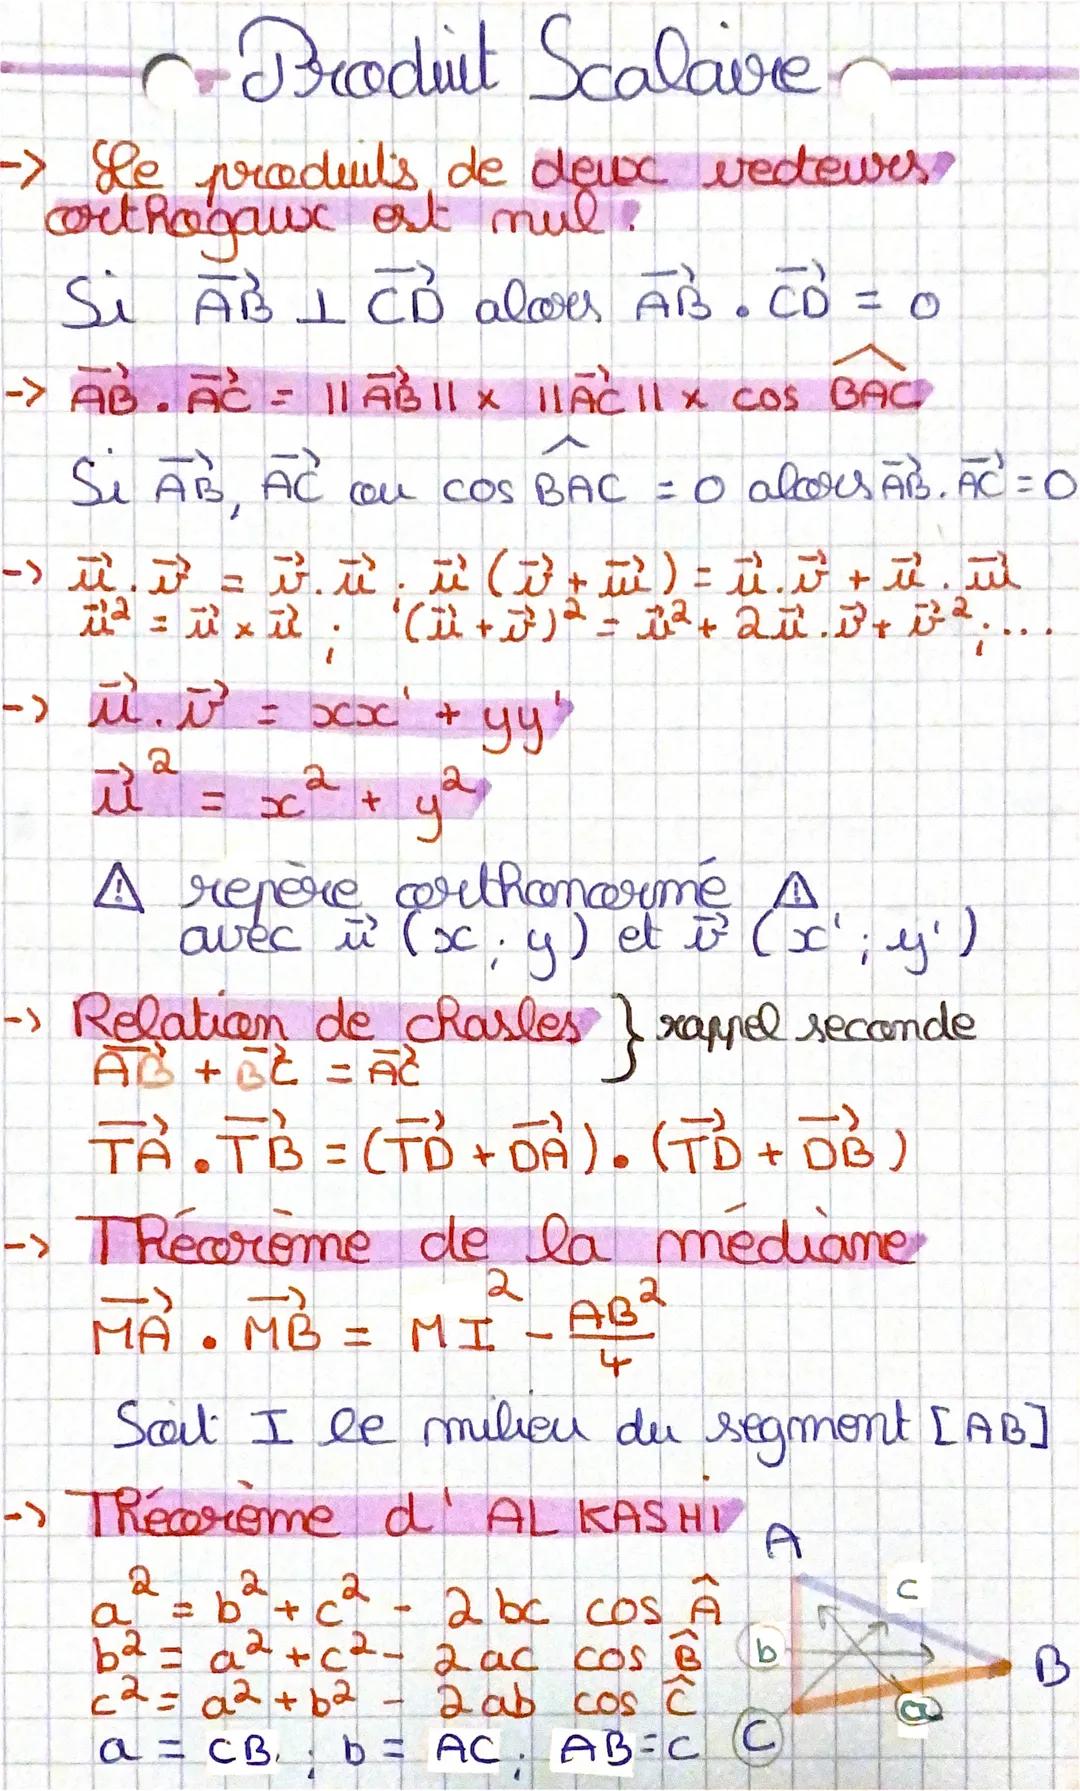 Produit Scalaire
-> Le produits de deux vecteurs
orthogaux est nul :
Si AB⃗ ⊥ CD⃗ alors AB⃗ . CD⃗ = 0
-> AB⃗ . AC⃗ = ||AB⃗|| x ||AC⃗|| x cos BAC^
Si AB⃗, AC⃗ ou cos BAC^ = 0 alors AB⃗ . AC⃗ = 0
-> u⃗ . v⃗ = v⃗ . u⃗ ; u⃗ (v⃗ + w⃗) = u⃗ . v⃗ + u⃗ . w⃗
u⃗² = u⃗ x u⃗ ; (u⃗ + v⃗)² = u⃗² + 2u⃗ . v⃗ + v⃗² ; ...
-> u⃗ . v⃗ = xx' + yy'
u⃗² = x² + y²
⚠ repère orthonormé ⚠
avec u⃗ (x ; y) et v⃗ (x' ; y')
-> Relation de chasles } rappel seconde
AB⃗ + BC⃗ = AC⃗
TA⃗ . TB⃗ = (TD⃗ + DA⃗) . (TD⃗ + DB⃗)
-> Théorème de la médiane
MA⃗ . MB⃗ = MI² - AB²/4
Soit I le milieu du segment [AB]
-> Théorème d'AL KASHI
a² = b² + c² - 2bc cos Â
b² = a² + c² - 2ac cos B̂
c² = a² + b² - 2ab cos Ĉ
a = CB ; b = AC ; AB = c
A
c
b
B
a
C